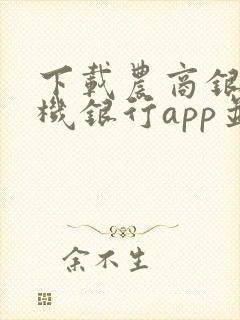 下載農商銀
機銀行app
余不生